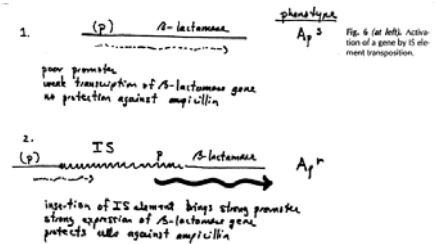 phenotype
1. (p) β-lactamase Ap s
Fig. 6 (at left). Activa-
tion of a gene by IS ele-
ment transposition.
poor promoter
weak transcription of β-lactamase gene
no protection against ampicillin
2.
(p) IS p β-lactamase Ap r
insertion of IS element brings strong promoter
strong expression of β-lactamase gene
protects cells against ampicillin